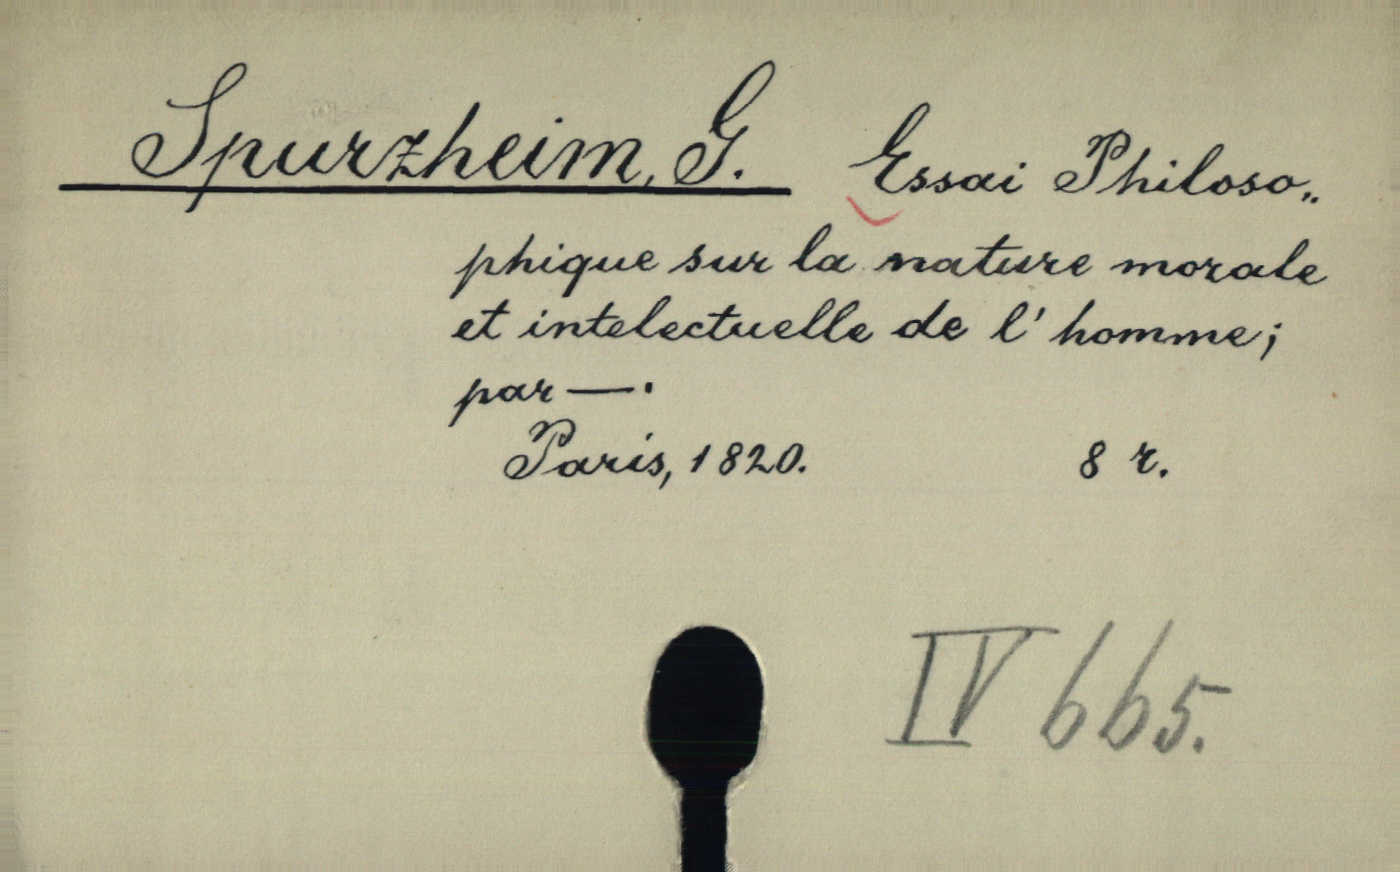 Spurzheim, G. Essai Philoso„
phique sur la nature morale
et intelectuelle de l' homme;
par —.
Paris, 1820. 8 r.
IV 665.